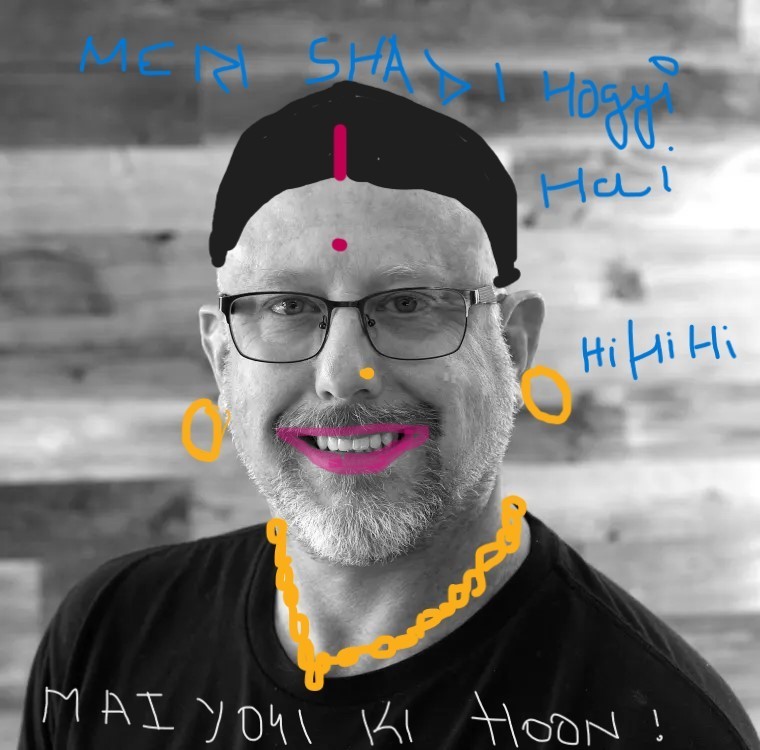 MERI SHADI Hogyi
Hai
HiHiHi
MAI YOYI KI HOON !